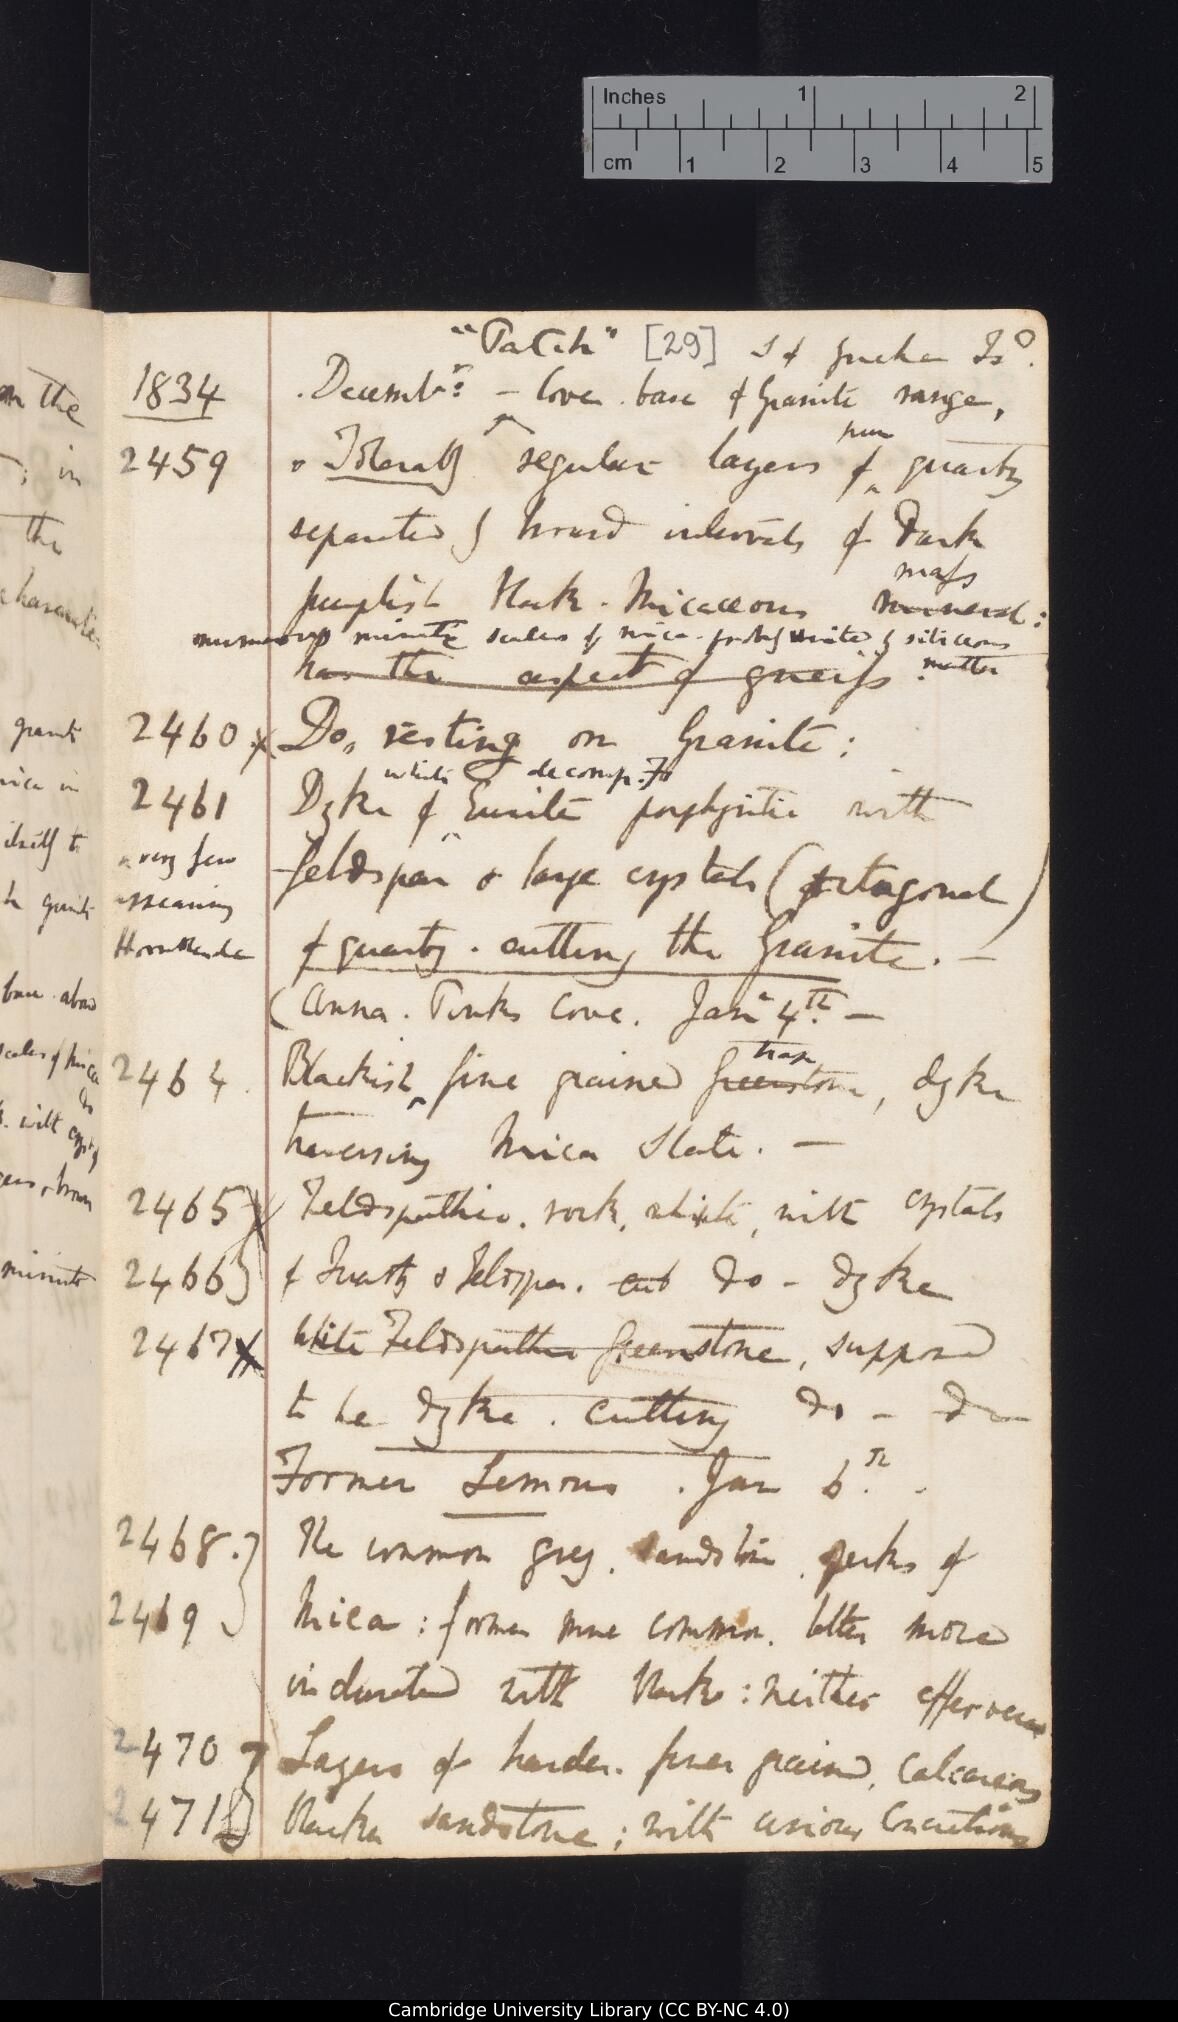 Inches 1 2
cm 1 2 3 4 5
"Patch" [29] S of Is^o.
1834 Decemb^r: — Cove. base of Granite range,
2459 Tolerably regular layers of pure quartz
separated by broad intervals of Dark
purplish black. Micaceous mass mineral:
numerous minute scales of mica. prob^y united by siliceous
has the aspect of gneiss. matter
2460 x Do, resting on Granite:
white decomp. F
2461 Dyke of Eurite porphyritic with
a very few feldspar & large crystals (octagonal)
appearing
Hornblende of quartz. cutting the Granite. —
(Anna. Pinks Cove. Jan^y 4^th. —
trap
2464. Blackish, fine grained Greenstone, dyke
traversing Mica Slate. —
2465 x Feldspathic. rock, white, with crystals
2466 } of Quartz & Feldspar. cut do — dyke
2467 x White Feldspathic Greenstone, supposed
to be dyke. cutting do — do
Former Lemous. Jan 6^th.
2468. } The common grey. sandstone. specks of
2469 } Mica: former more common. latter more
indurated with black: neither effervesce
2470 Layers of harder. finer grained, calcareous
2471 } blacker sandstone; with curious Concretions
on the
in
the
character
granite
mica in
itself to
base. above
scales of mica
Do
with
brown
minute
Cambridge University Library (CC BY-NC 4.0)